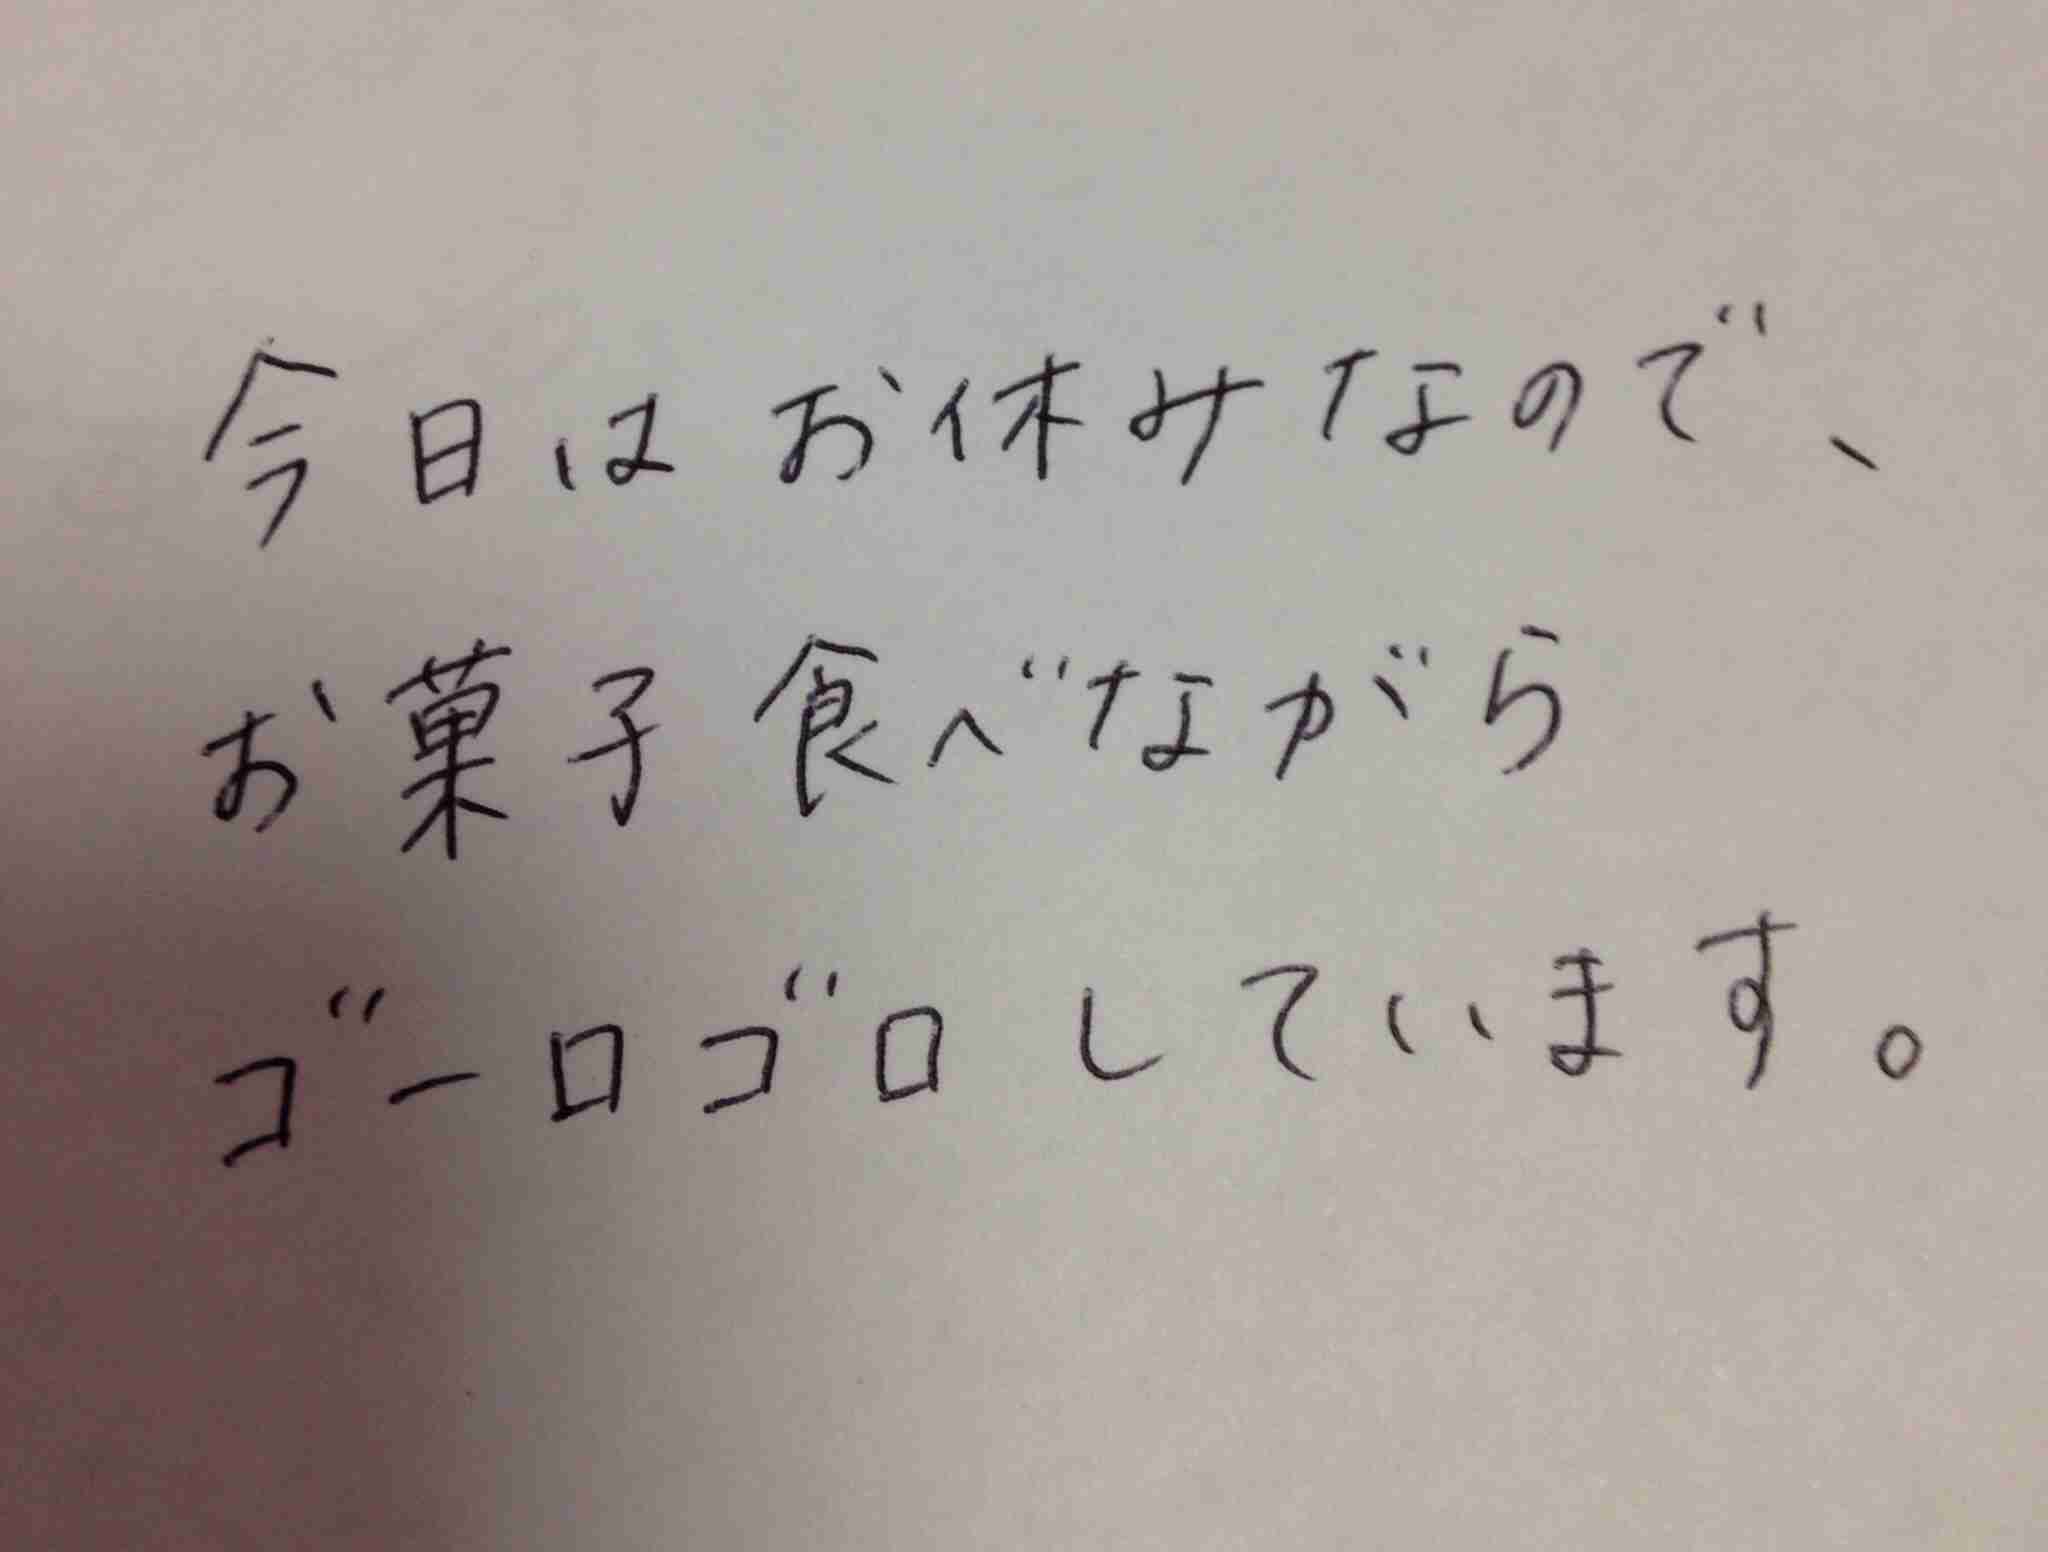 今日はお休みなので、
お菓子食べながら
ゴーロゴロしています。